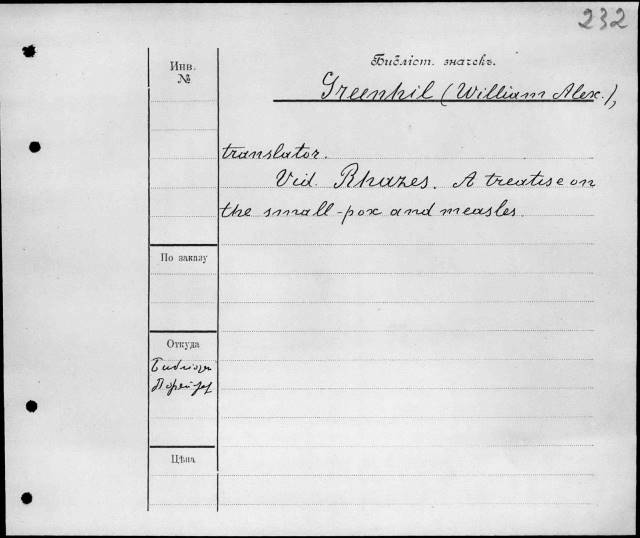 232
Инв.
№
Библіот. значекъ.
Greenhil (William Alex.),
translator.
Vid. Rhazes. A treatise on
the small-pox and measles.
По заказу
Откуда
Цѣна